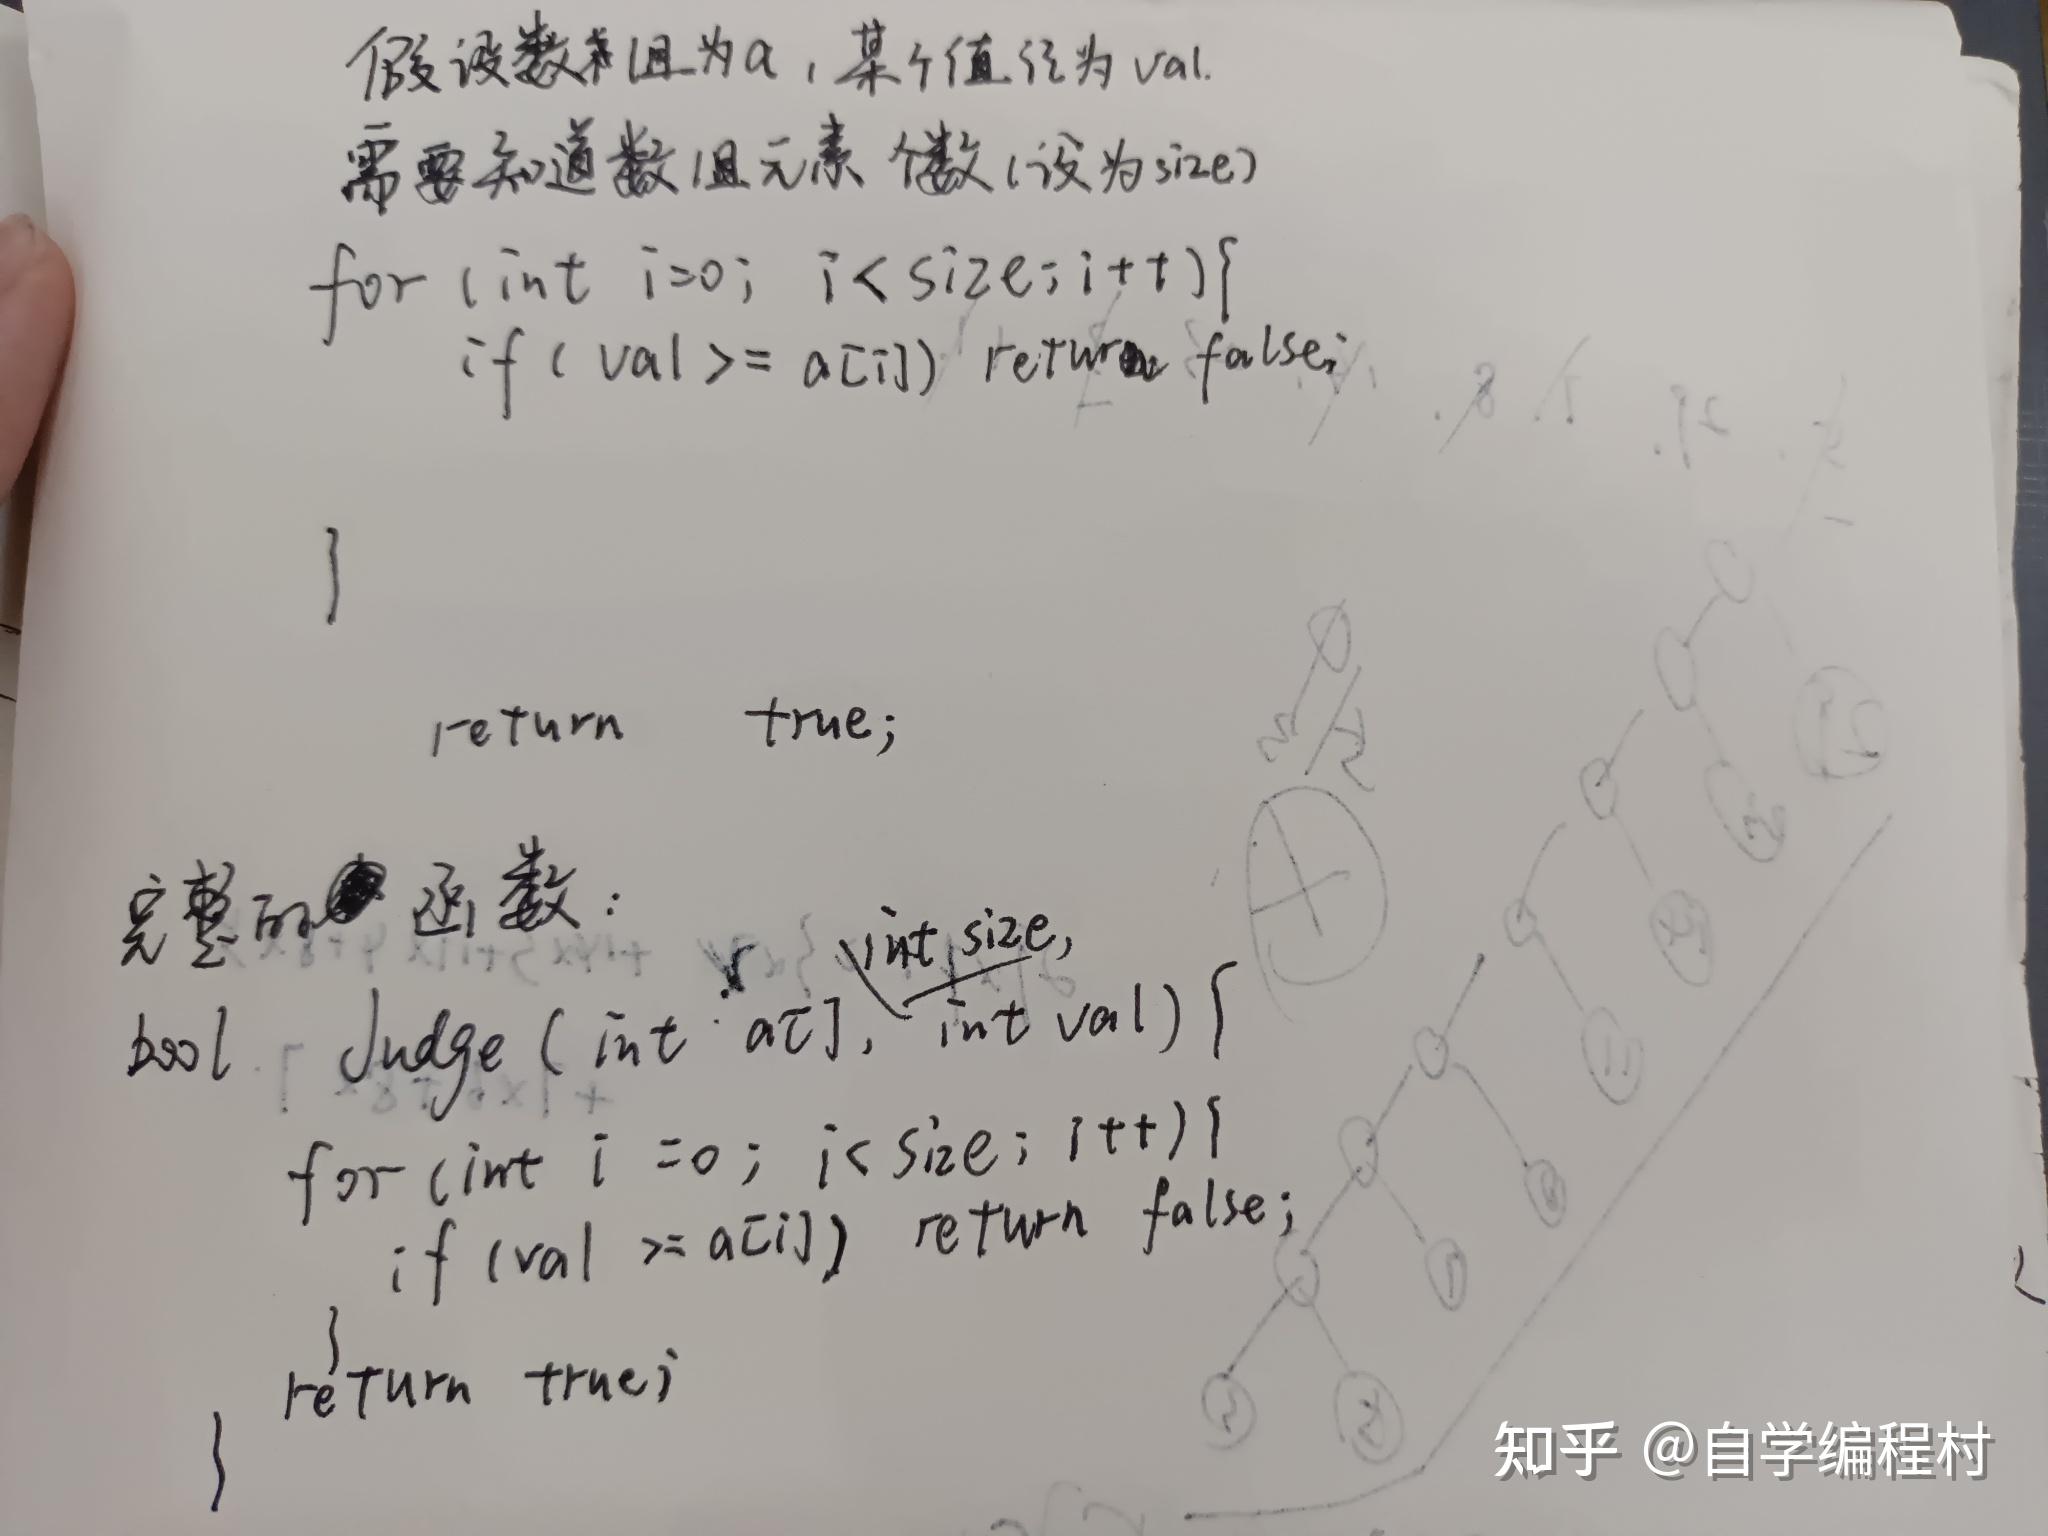 假设数组为a，某个值设为val.
需要知道数组元素个数(设为size)
for (int i=0; i<size; i++){
if (val >= a[i]) return false;
}
return true;
完整的函数:
int size,
bool Judge (int a[], int val) {
for (int i =0; i< size; i++){
if (val >= a[i]) return false;
}
return true;
}
知乎 @自学编程村